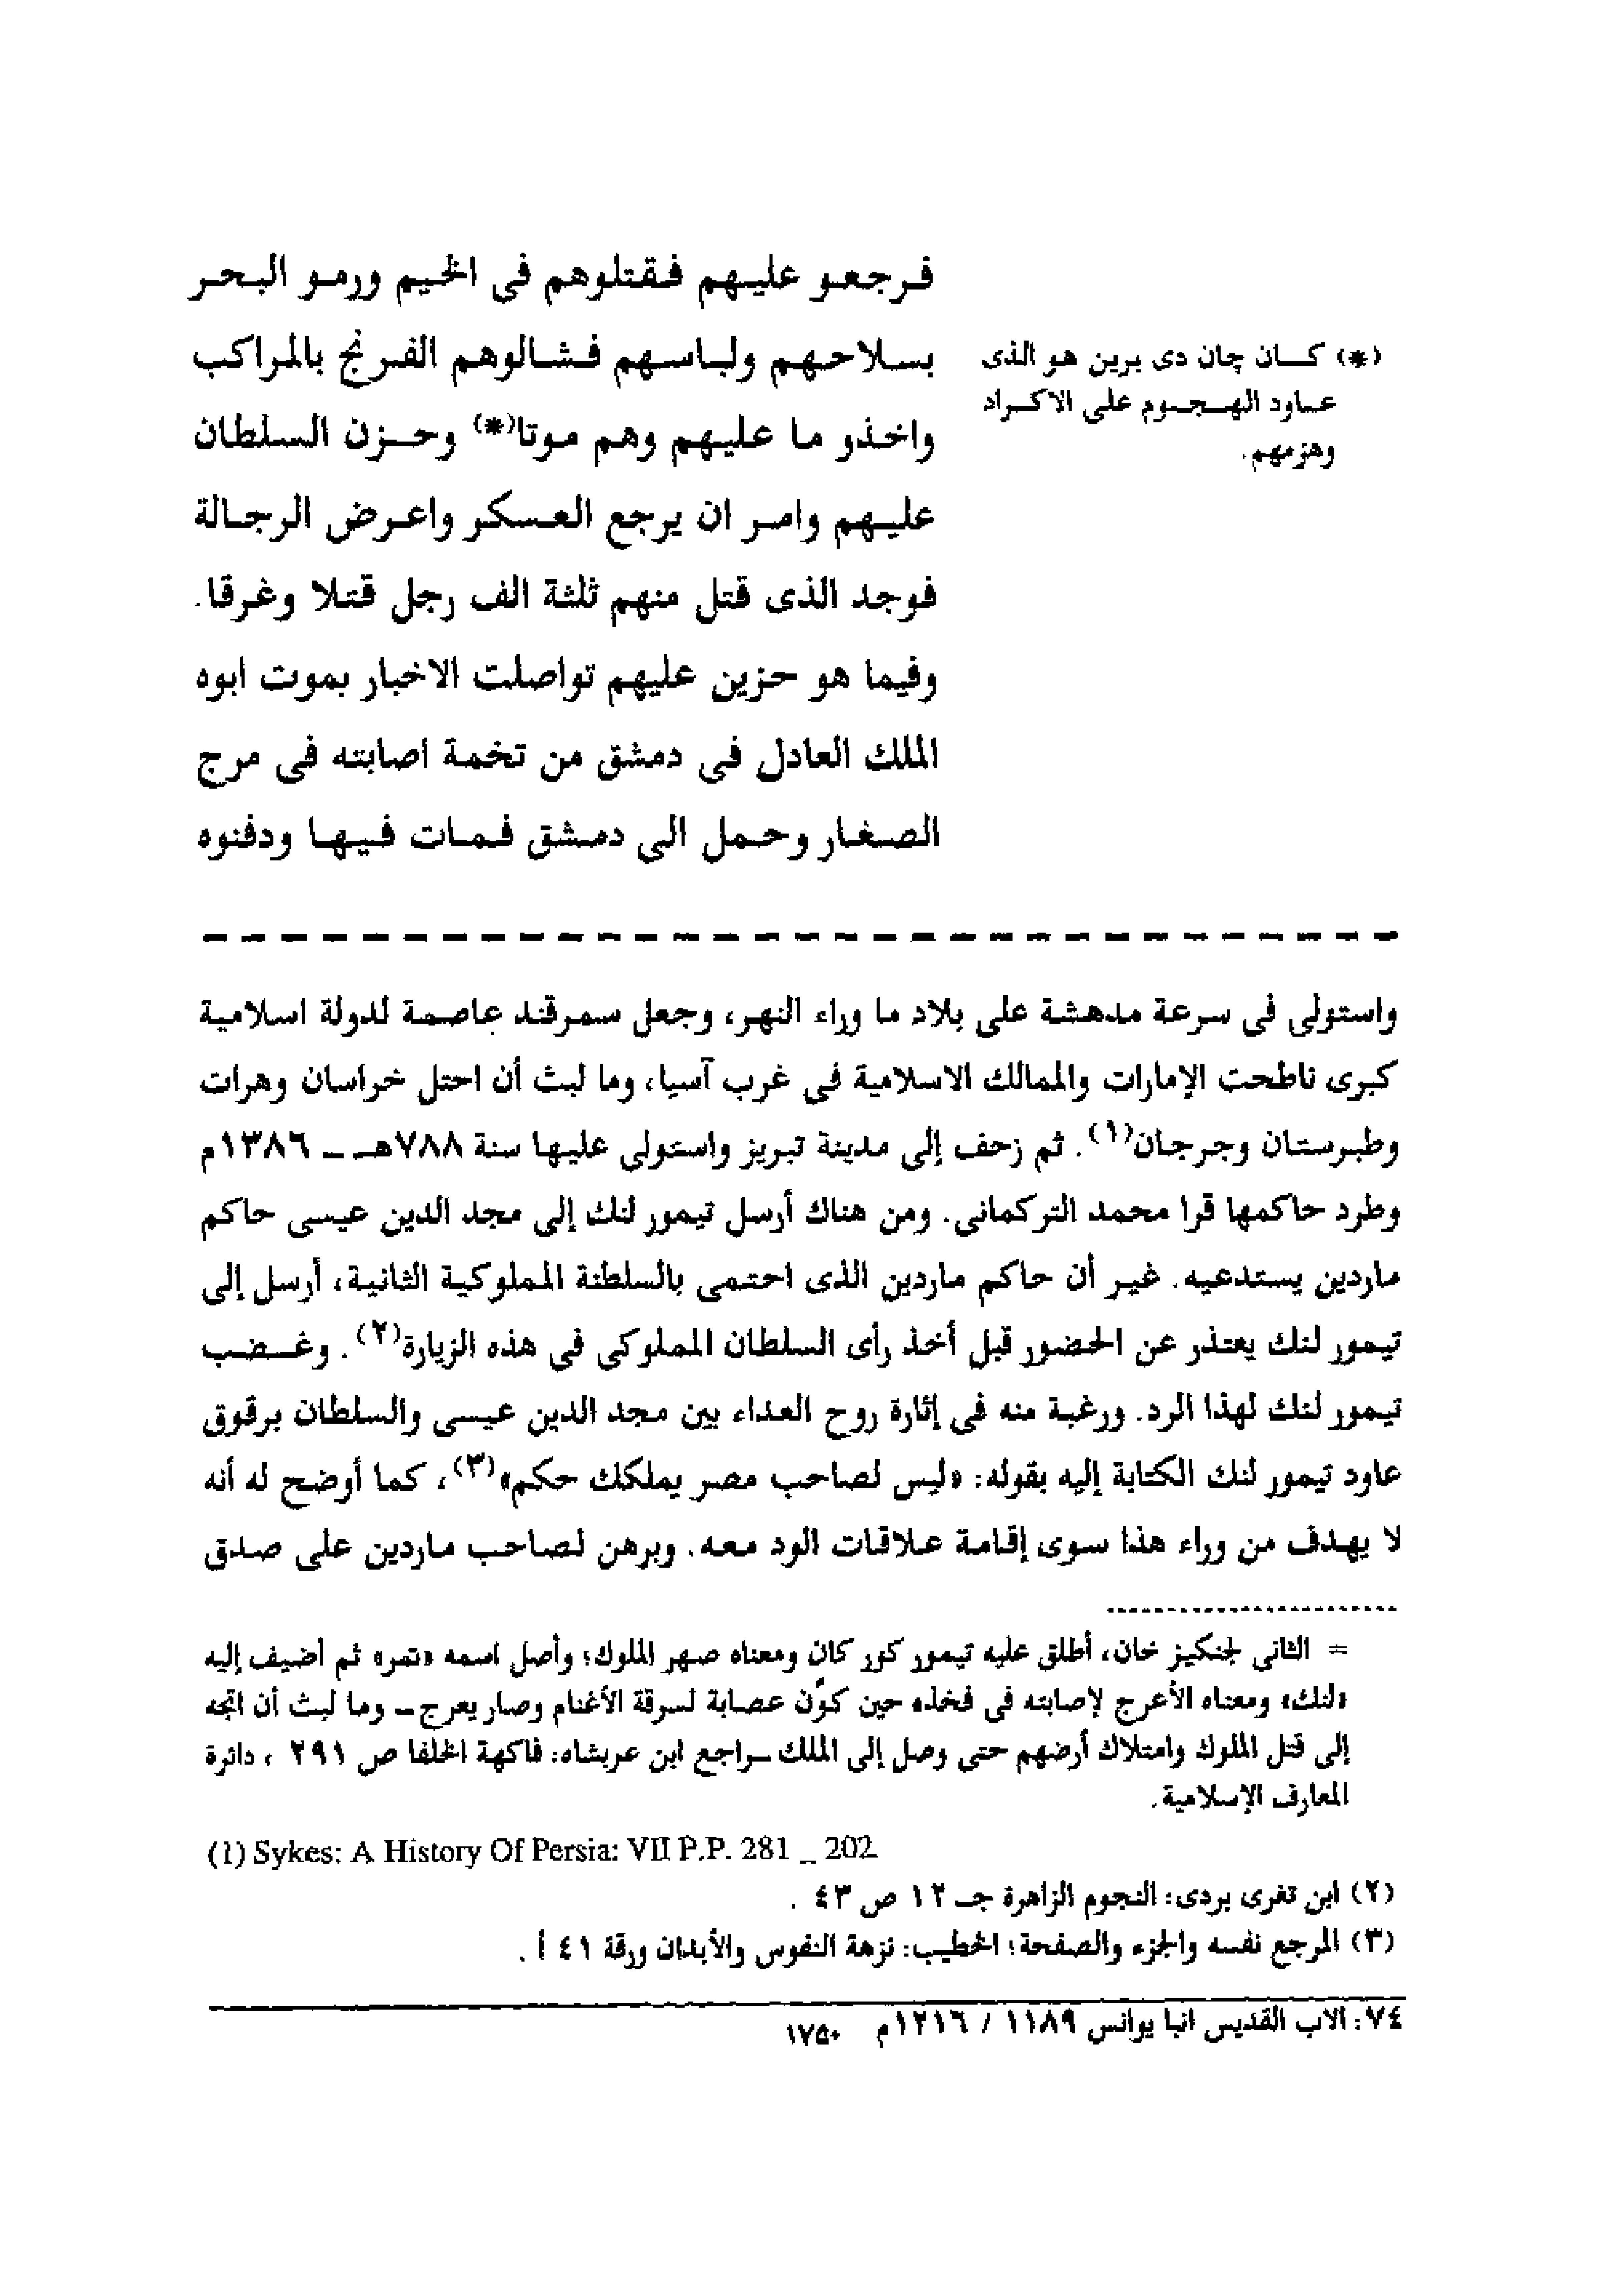 فرجعو عليهم فقتلوهم فى الخيم ورمو البحر
بسلاحهم ولباسهم فشالوهم الفرنج بالمراكب
واخذو ما عليهم وهم موتا(*) وحزن السلطان
عليهم وامر ان يرجع العسكر واعرض الرجالة
فوجد الذى قتل منهم ثلثة الف رجل قتلا وغرقا.
وفيما هو حزين عليهم تواصلت الاخبار بموت ابوه
الملك العادل فى دمشق من تخمة اصابته فى مرج
الصغار وحمل الى دمشق فمات فيها ودفنوه
(*) كان چان دى برين هو الذى
عاود الهجوم على الاكراد
وهزمهم.
واستولى فى سرعة مدهشة على بلاد ما وراء النهر، وجعل سمرقند عاصمة لدولة اسلامية
كبرى ناطحت الإمارات والممالك الاسلامية فى غرب آسيا، وما لبث أن احتل خراسان وهرات
وطبرستان وجرجان(١). ثم زحف إلى مدينة تبريز واستولى عليها سنة ٧٨٨هـ - ١٣٨٦م
وطرد حاكمها قرا محمد التركمانى. ومن هناك أرسل تيمور لنك إلى مجد الدين عيسى حاكم
ماردين يستدعيه. غير أن حاكم ماردين الذى احتمى بالسلطنة المملوكية الثانية، أرسل إلى
تيمور لنك يعتذر عن الحضور قبل أخذ رأى السلطان المملوكى فى هذه الزيارة(٢). وغضب
تيمور لنك لهذا الرد. ورغبة منه فى إثارة روح العداء بين مجد الدين عيسى والسلطان برقوق
عاود تيمور لنك الكتابة إليه بقوله: «ليس لصاحب مصر يملكك حكم»(٣)، كما أوضح له أنه
لا يهدف من وراء هذا سوى إقامة علاقات الود معه. وبرهن لصاحب ماردين على صدق
= الثانى لجنكيز خان، أطلق عليه تيمور كور كان ومعناه صهر الملوك؛ وأصل اسمه «تمر» ثم أضيف إليه
«لنك» ومعناه الأعرج لإصابته فى فخذه حين كوّن عصابة لسرقة الأغنام وصار يعرج - وما لبث أن اتجه
إلى قتل الملوك وامتلاك أرضهم حتى وصل إلى الملك - راجع ابن عربشاه: فاكهة الخلفا ص ٢٩١ ، دائرة
المعارف الإسلامية.
(1) Sykes: A History Of Persia: VII P.P. 281 _ 202
(٢) ابن تغرى بردى: النجوم الزاهرة جـ ١٢ ص ٤٣ .
(٣) المرجع نفسه والجزء والصفحة؛ الخطيب: نزهة النفوس والأبدان ورقة ٤١ أ .
٧٤: الاب القديس انبا يوانس ١١٨٩ / ١٢١٦م ١٧٥٠